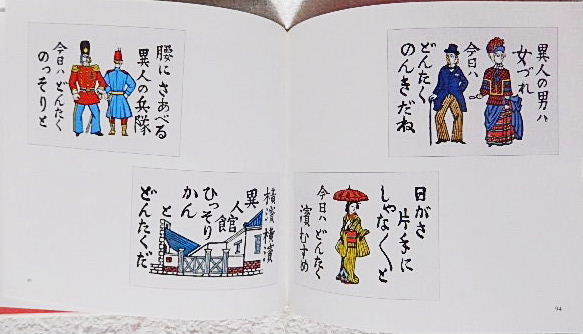 異人の男ハ
女づれ
今日ハ
どんたく
のんきだね
日がさ
片手に
しゃなく〱と
今日ハどんたく
濱むすめ
腰にさあべる
異人の兵隊
今日ハどんたく
のっそりと
横濱横濱
異人館
ひっそり
かんと
どんたくだ
94